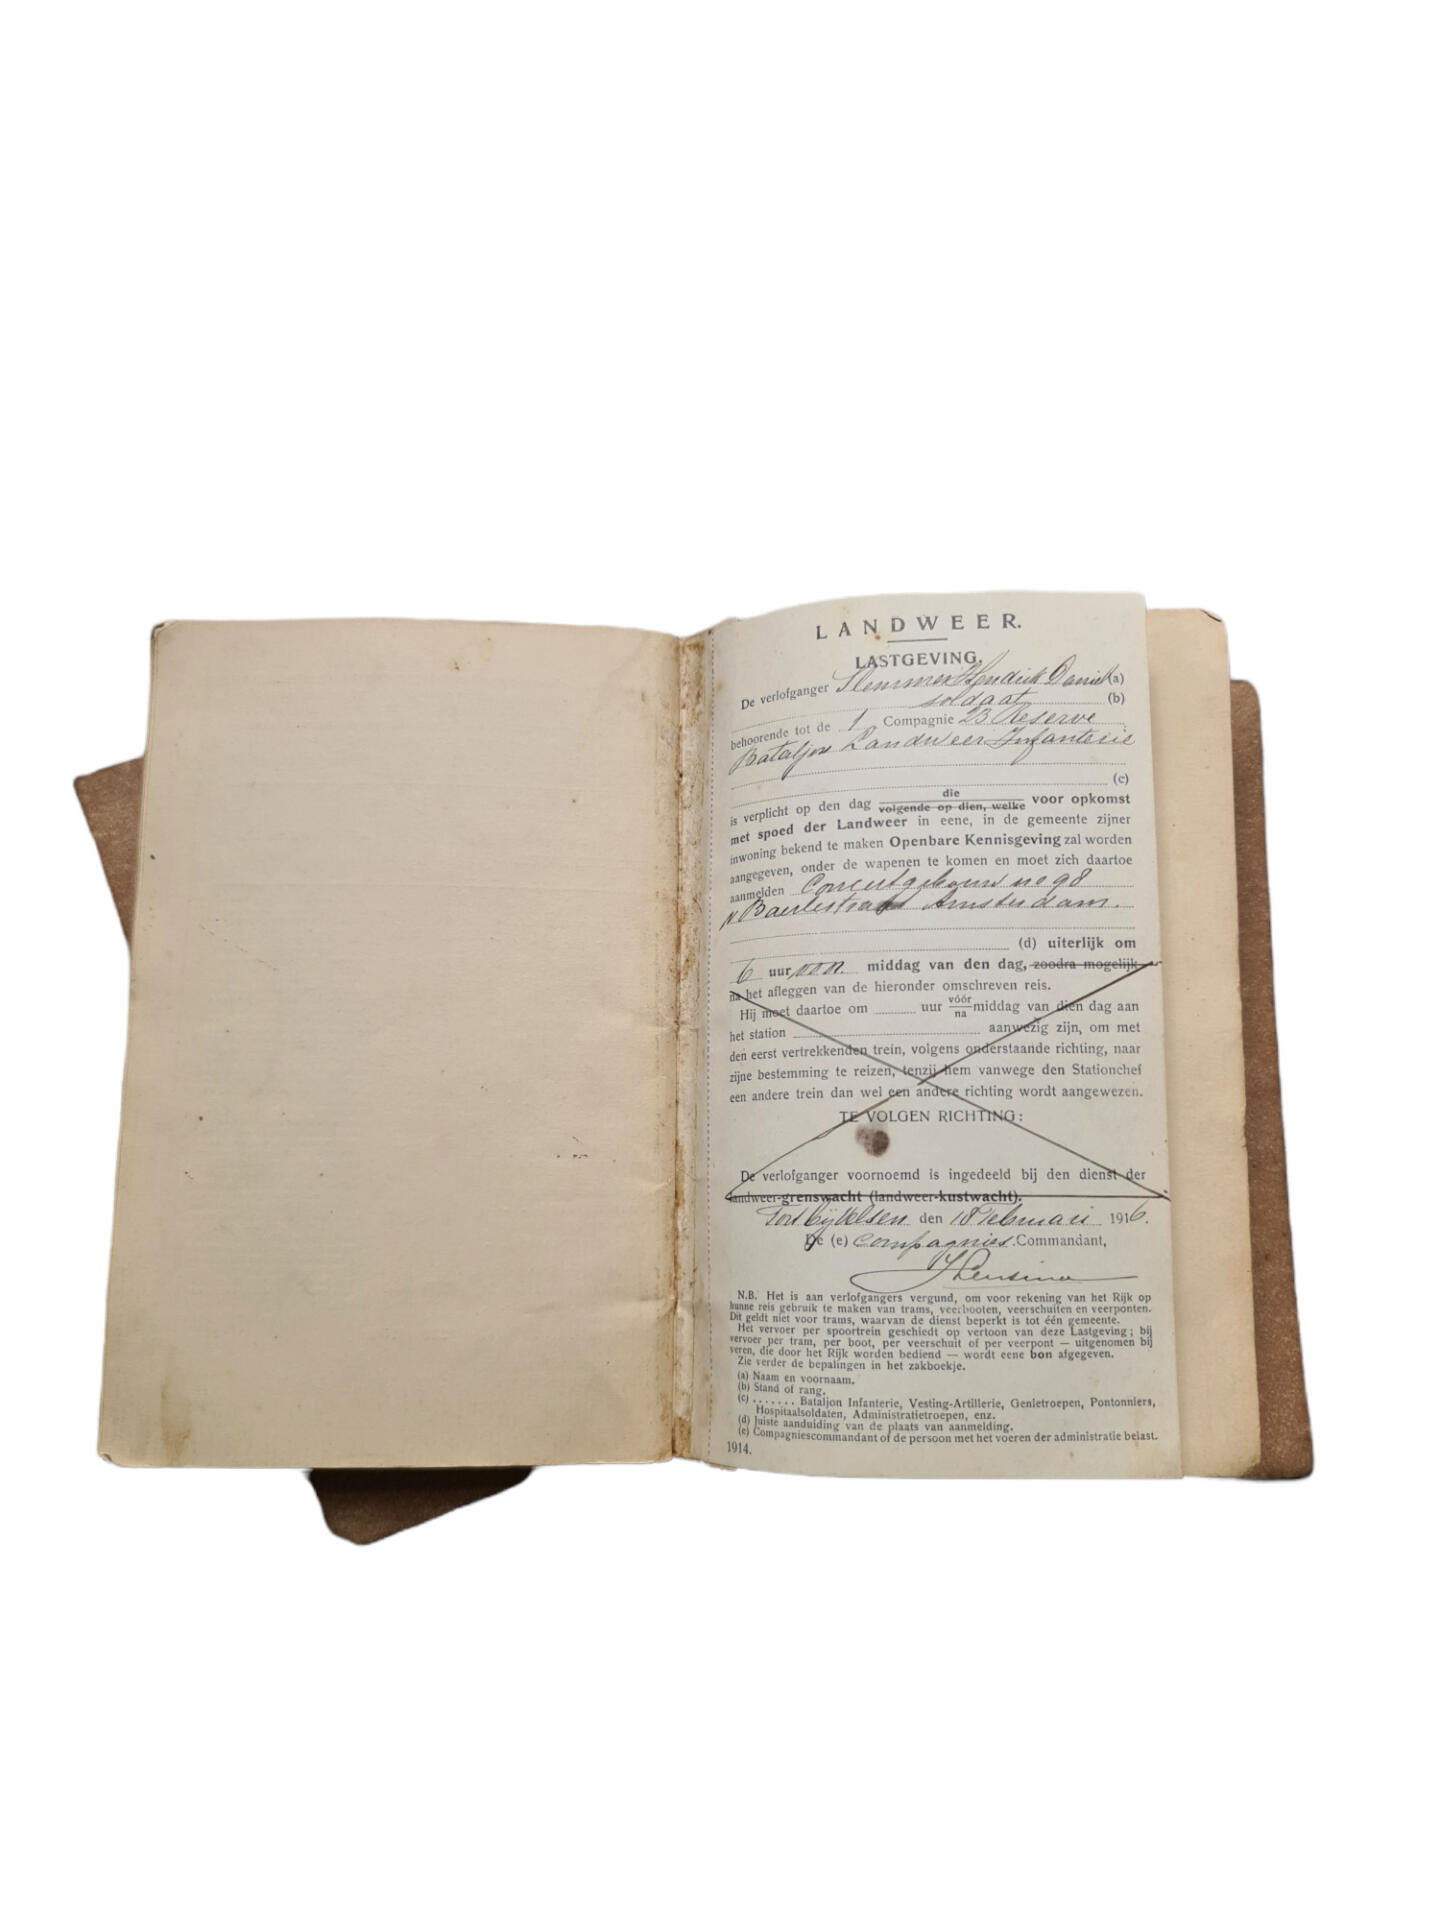 LANDWEER.
LASTGEVING.
De verlofganger Slemmer Hendrik Daniel (a)
soldaat (b)
behoorende tot de 1 Compagnie 23 Reserve
Bataljon Landweer Infanterie
(c)
is verplicht op den dag die volgende op dien, welke voor opkomst
met spoed der Landweer in eene, in de gemeente zijner
inwoning bekend te maken Openbare Kennisgeving zal worden
aangegeven, onder de wapenen te komen en moet zich daartoe
aanmelden Concertgebouw no 98
v Baerlestraat Amsterdam.
(d) uiterlijk om
6 uur voor middag van den dag, zoodra mogelijk
na het afleggen van de hieronder omschreven reis.
Hij moet daartoe om ........ uur vóór na middag van dien dag aan
het station ........ aanwezig zijn, om met
den eerst vertrekkenden trein, volgens onderstaande richting, naar
zijne bestemming te reizen, tenzij hem vanwege den Stationchef
een andere trein dan wel een andere richting wordt aangewezen.
TE VOLGEN RICHTING:
De verlofganger voornoemd is ingedeeld bij den dienst der
landweer-grenswacht (landweer-kustwacht).
Fort bij den 18 Februari 1916.
De (e) Compagnies Commandant,
N.B. Het is aan verlofgangers vergund, om voor rekening van het Rijk op
hunne reis gebruik te maken van trams, veerbooten, veerschuiten en veerponten.
Dit geldt niet voor trams, waarvan de dienst beperkt is tot één gemeente.
Het vervoer per spoortrein geschiedt op vertoon van deze Lastgeving; bij
vervoer per tram, per boot, per veerschuit of per veerpont — uitgenomen bij
veren, die door het Rijk worden bediend — wordt eene bon afgegeven.
Zie verder de bepalingen in het zakboekje.
(a) Naam en voornaam.
(b) Stand of rang.
(c) ....... Bataljon Infanterie, Vesting-Artillerie, Genietroepen, Pontonniers,
Hospitaalsoldaten, Administratietroepen, enz.
(d) Juiste aanduiding van de plaats van aanmelding.
(e) Compagniescommandant of de persoon met het voeren der administratie belast.
1914.